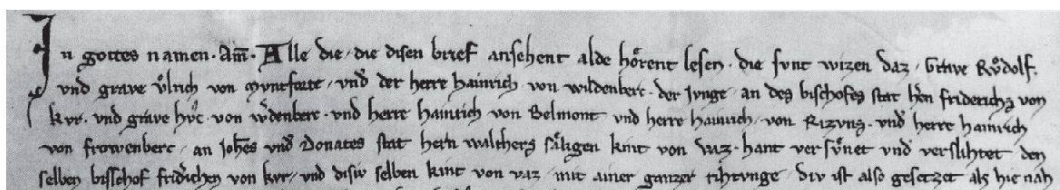 In gottes namen · Am̅ · Alle die · die disen brief ansehent alde hoͤrent lesen · die sunt wizen daz · Grave Ruͦdolf ·
vnd grave vͦlrich von Muntfort · vnd̅ der herre hainrich von wildenberc · der Junge · an des bischofes stat hern friderichs von
kur · vnd grave huͦc · von w̍denberc · vnd herre hainrich von Belmont vnd herre hainrich · von Rizuns · vnd̅ herre hainrich
von frowenberc · an Joh̅es vnd̅ Donates stat hern walthers saͤligen kint von vaz · hant versuͤnet vnd̅ verslihtet den
selben bisschof frid̍ichen von kur · vnd disiv selben kint von vaz · mit ainer ganzer rihtunge · div ist also gesetzet als hie nah